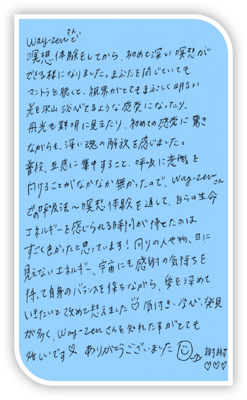 Way-zenさんで
瞑想体験をしてから、初めて深い瞑想が
できる様になりました。まぶたを閉じていても
マントラを聴して、視界がとてもまぶしく明るい
光を沢山浴びてるような感覚になったり、
丹光も鮮明に見えたり、初めての感覚に驚き
ながらも、深い魂の解放を感じました。
普段、五感に集中すること、呼吸に意識を
向けることがなかなか無かったので、Way-zenさん
での呼吸法〜瞑想体験を通して、自らの生命
エネルギーを感じられる時間が持てたのは
すごく良かったと思っています！周りの人や物、目に
見えないエネルギー、宇宙にも感謝の気持ちを
持って自身のバランスを保ちながら、愛を深めて
いきたいと改めて想えました♡気付き・学び・発見
が多く、Way-zenさんを知れた事がとても
嬉しいです♡ありがとうございました
謝謝
♡♡♡